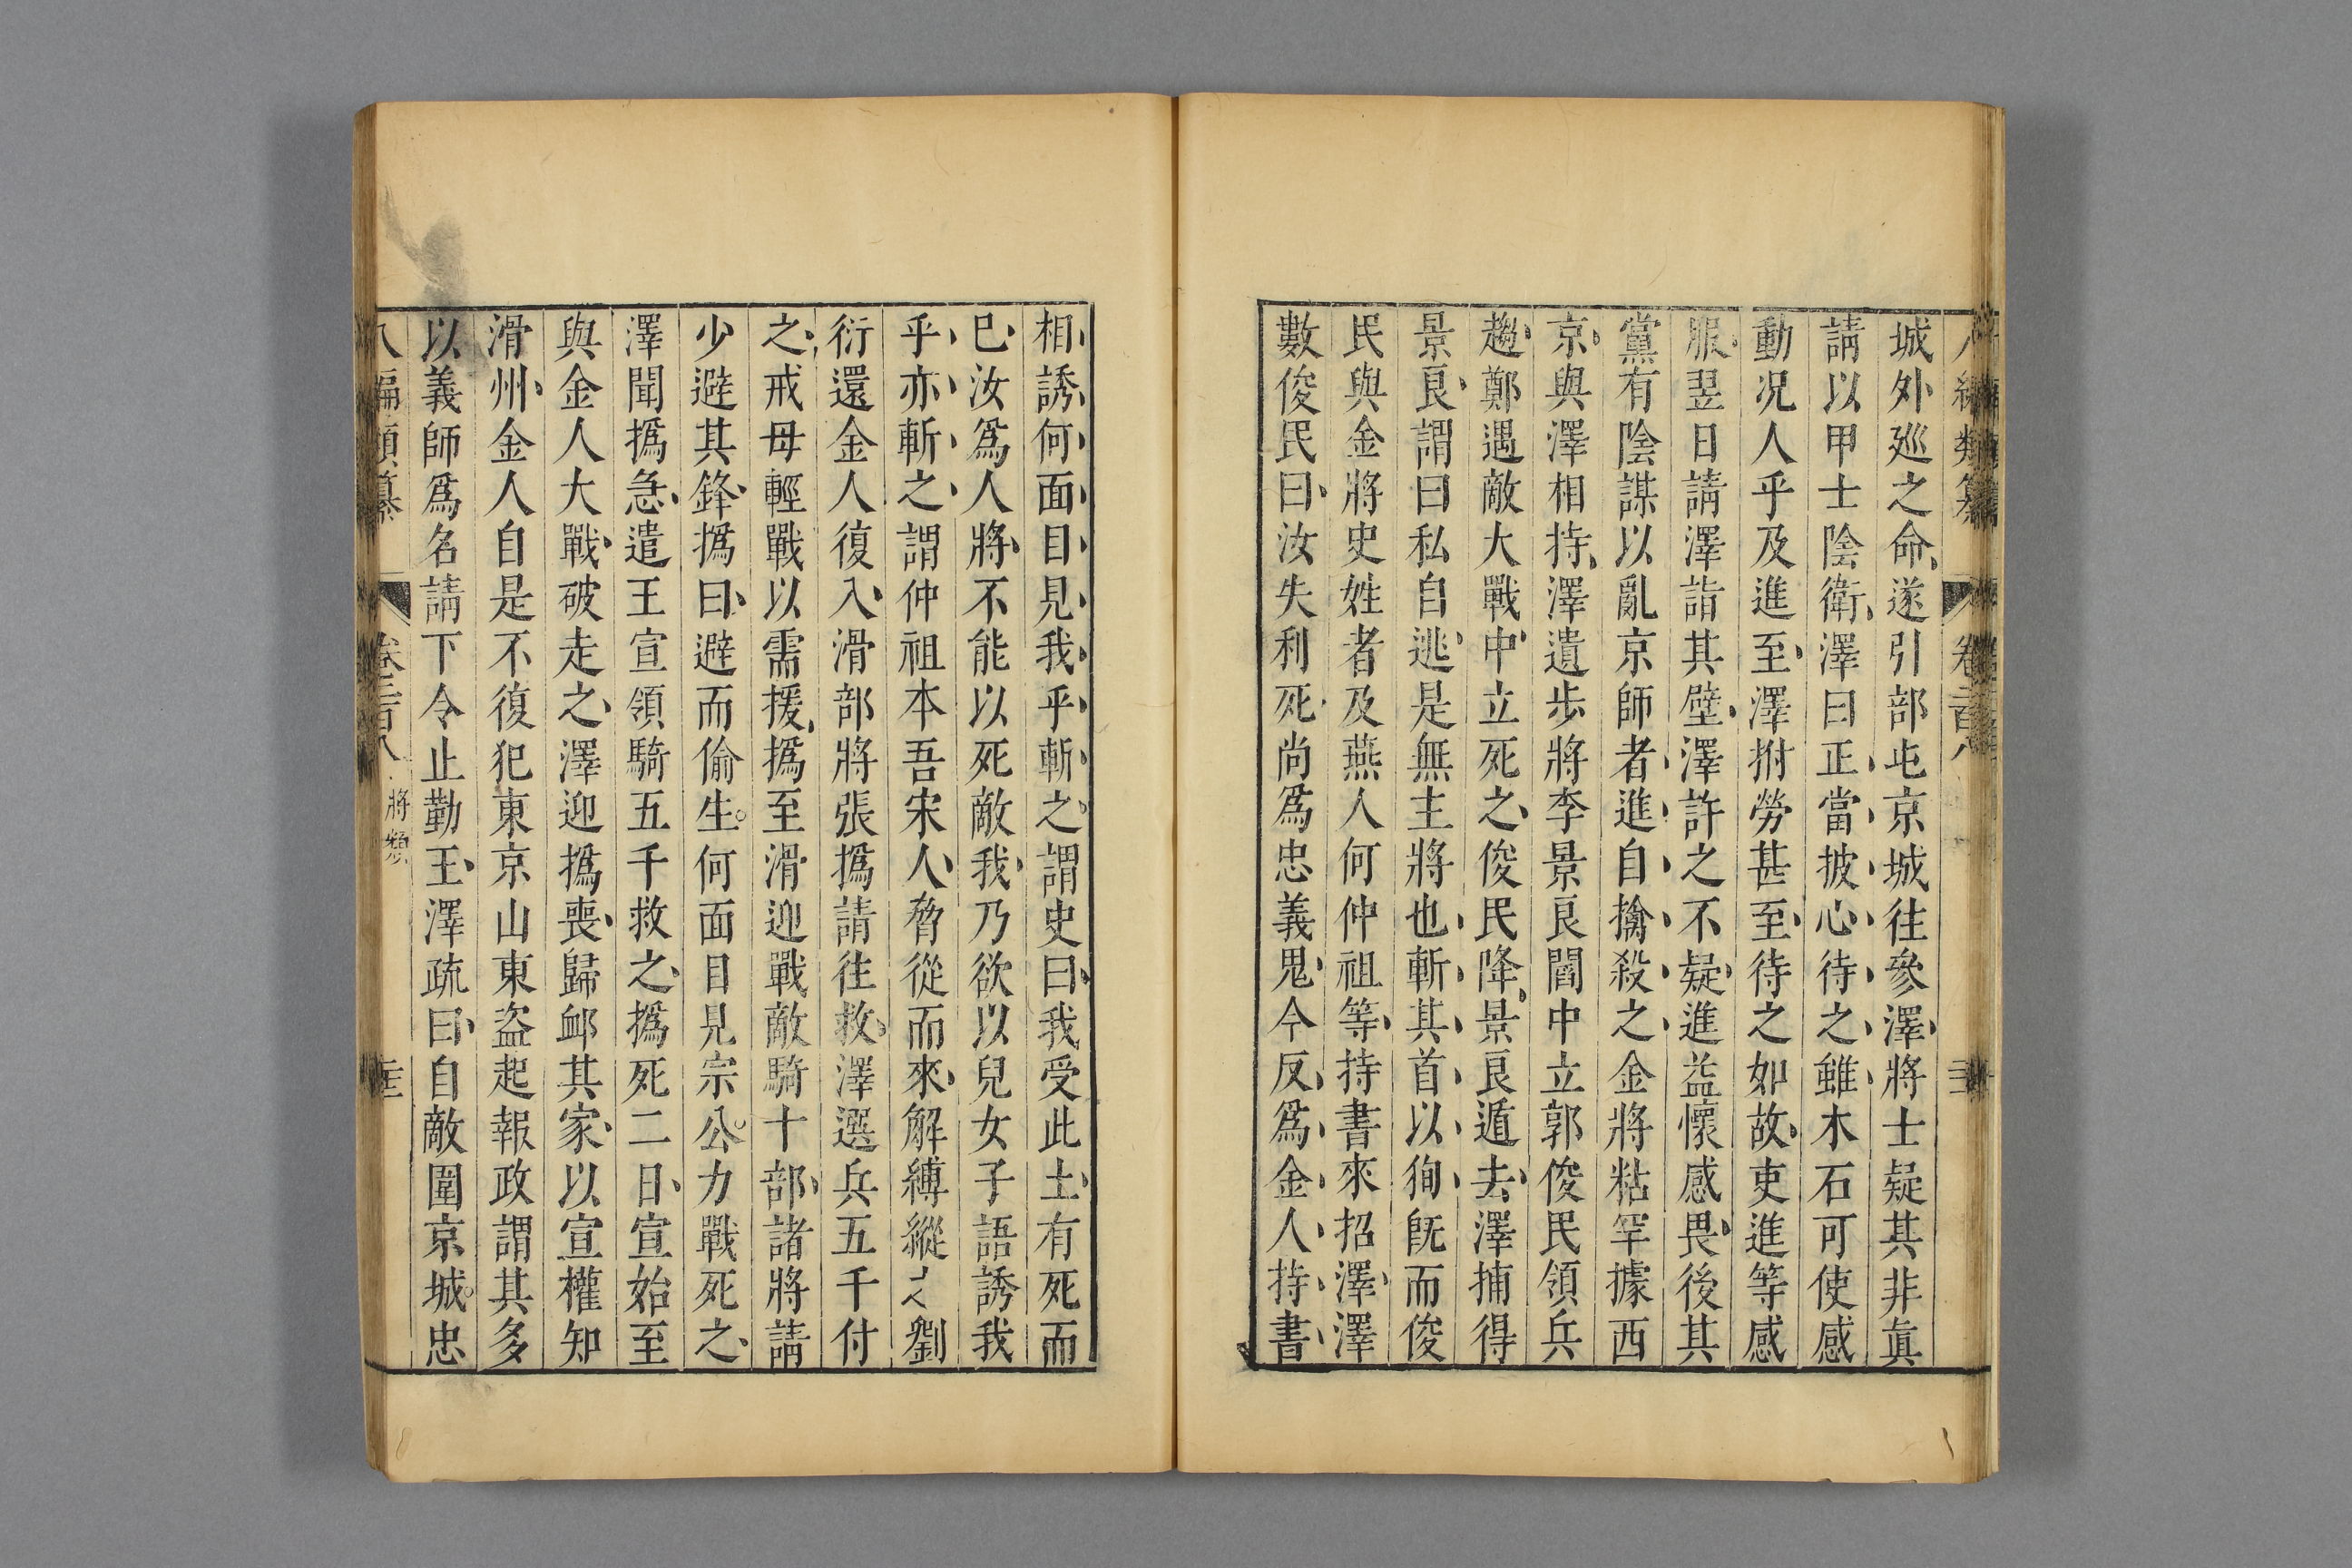 八編類纂 卷二百八
城外廵之命遂引部屯京城徃參澤將士疑其非眞
請以甲士陰衛澤曰正當披心待之雖木石可使感
動况人乎及進至澤拊勞甚至待之如故吏進等感
服翌日請澤詣其壁澤許之不疑進益懷感畏後其
黨有陰謀以亂京師者進自擒殺之金將粘罕據西
京與澤相持澤遣步將李景良閻中立郭俊民領兵
趨鄭遇敵大戰中立死之俊民降景良遁去澤捕得
景良謂曰私自逃是無主將也斬其首以狥旣而俊
民與金將史姓者及燕人何仲祖等持書來招澤澤
數俊民曰汝失利死尚爲忠義鬼今反爲金人持書
相誘何面目見我乎斬之謂史曰我受此土有死而
巳汝爲人將不能以死敵我乃欲以兒女子語誘我
乎亦斬之謂仲祖本吾宋人脅從而來解縛縱之劉
衍還金人復入滑部將張撝請徃救澤選兵五千付
之戒毋輕戰以需援撝至滑迎戰敵騎十部諸將請
少避其鋒撝曰避而偷生何面目見宗公力戰死之
澤聞撝急遣王宣領騎五千救之撝死二日宣始至
與金人大戰破走之澤迎撝喪歸卹其家以宣權知
滑州金人自是不復犯東京山東盗起報政謂其多
以義師爲名請下令止勤王澤疏曰自敵圍京城忠
八編類纂 卷二百八 將類